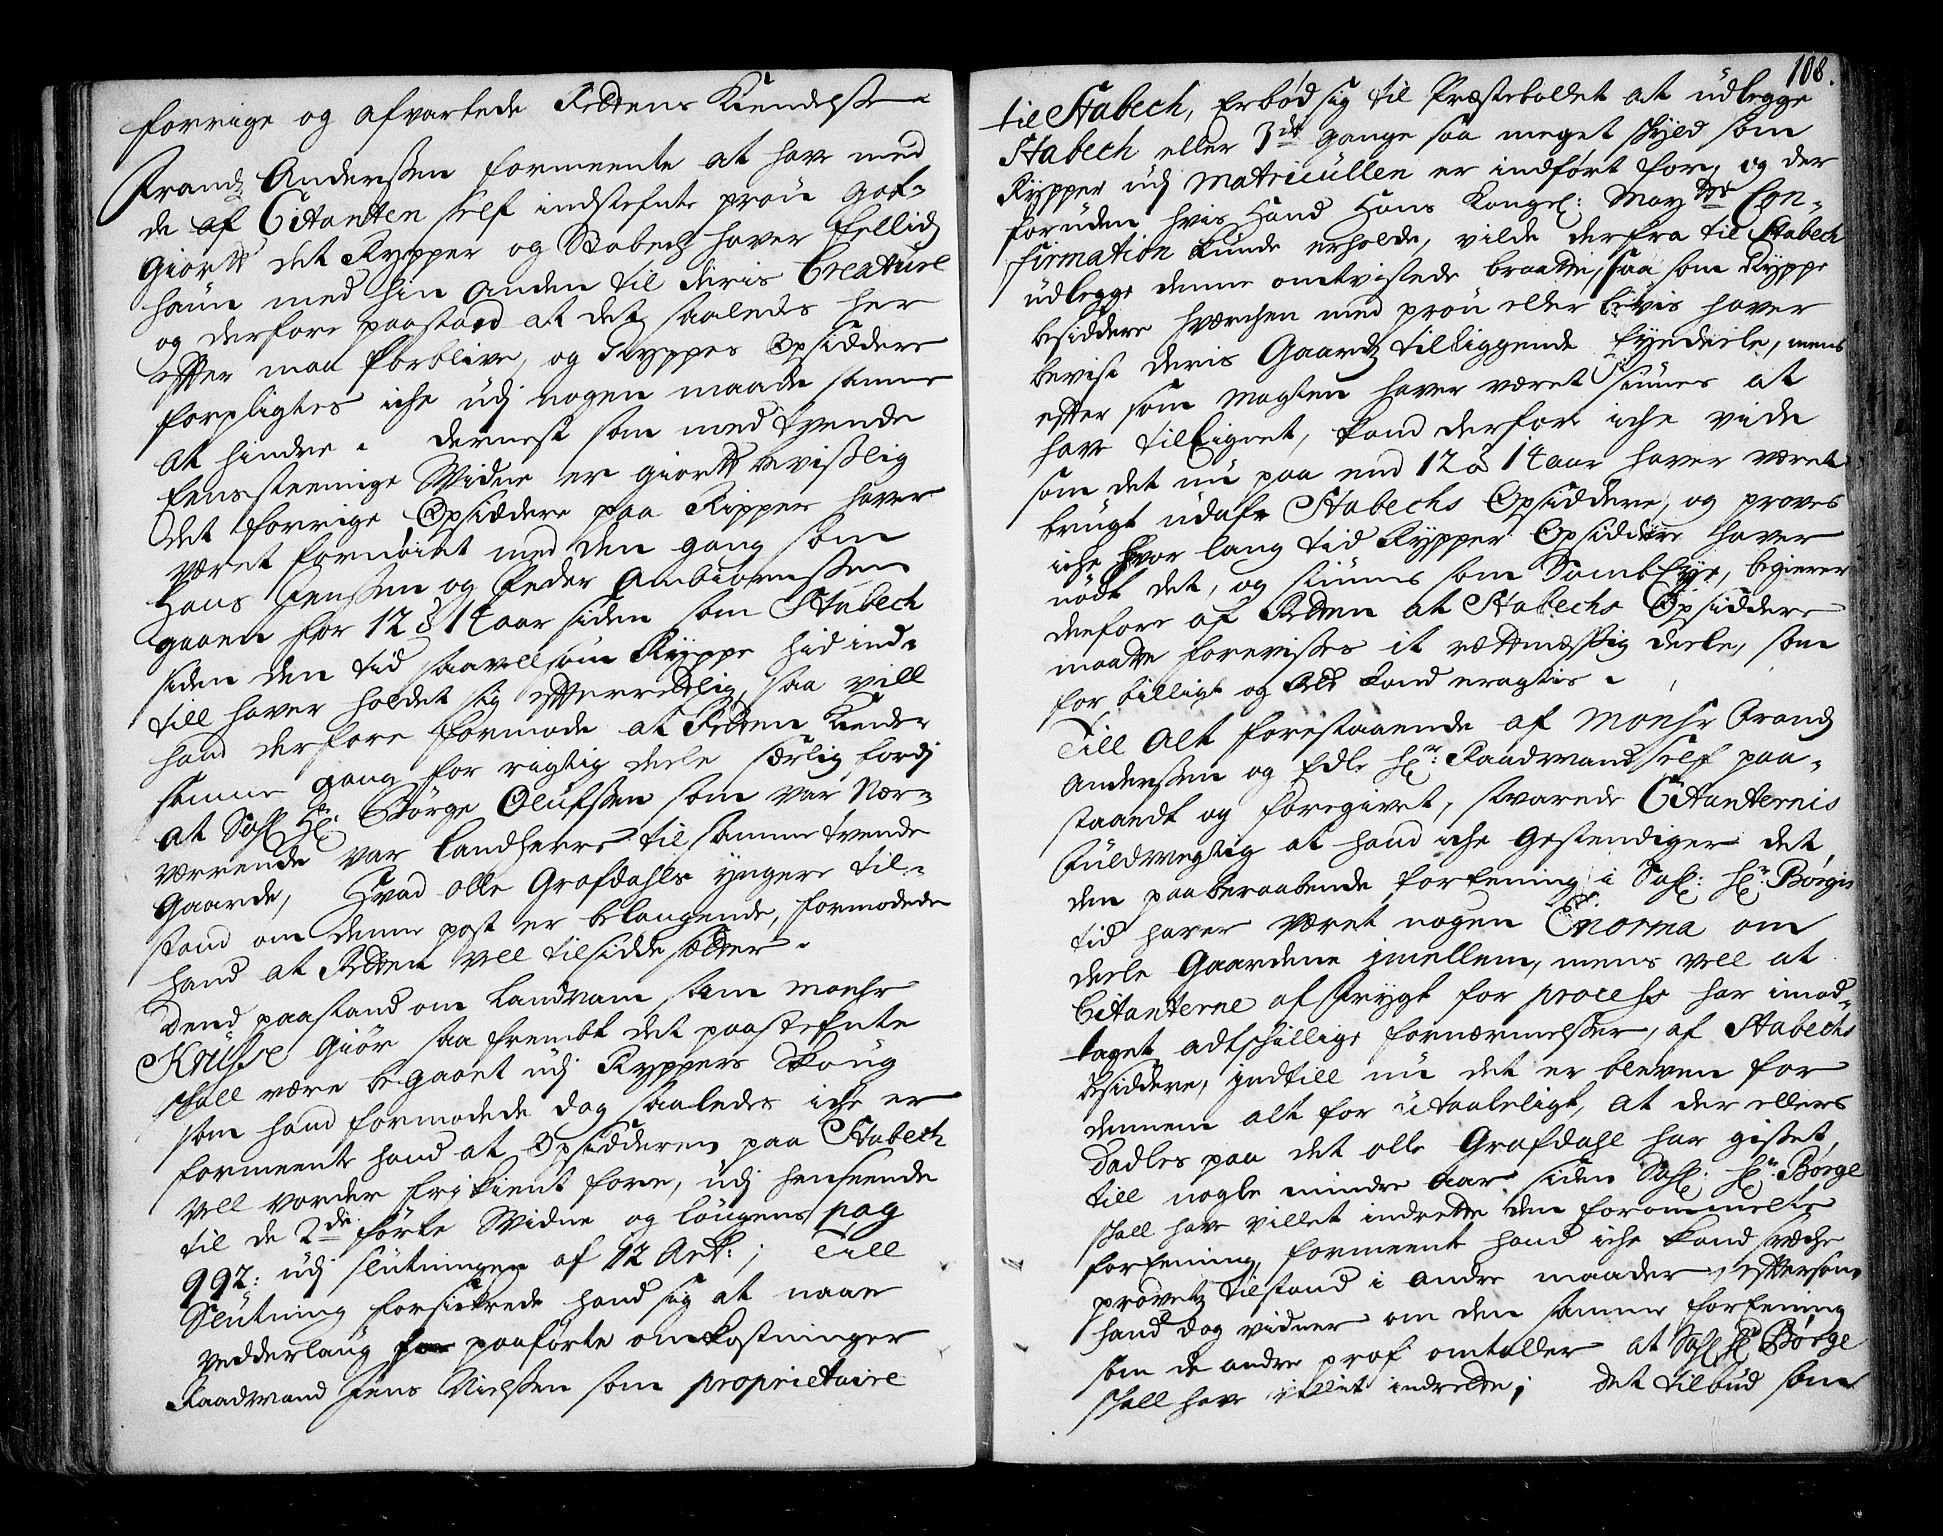 forrige og afvartede Rettens Kiendelsse
Frandz Anderssen formeente at have med
de af Citanten self indstefnte prou got-
giortt det Rypper og Stabech haver skellid
haun med hin anden til deris Creature
og derfore paastoed at det saaledes her
effter maa forblive, og Ryppes Opsiddere
forpligtes iche udj nogen maade samme
at hindre. dernest som med tvende
eensstemmige Widne er giortt bevisslig
det forrige Opsiddere paa Ripper haver
været fornøiet med den gang som
Hans Jenssen og Peder Ambiørnssen
gaaen for 12 à 14 aar siden som Stabech
siden den tid saavelsom Ryppe hid ind-
till haver holdet sig effterrettelig, saa vill
hand derfore formode at Retten kiender
samme gang for rigtig deele særlig fordj
at Sahl Hr: Børge Olufssen som var Nær-
værende var Landherre til samme tvende
Gaarde, Hvad Olle Grafdahls yngere til-
stand om denne post er belangende, formodede
hand at Retten vell tilsidde setter.
Dend paastand om Landnam som Monsr
Kruse giør saafremt det paastefnte
skall være begaaet udj Ryppers Skoug
som hand formodede dog saaledes iche er
formeente hand at Opsidderen paa Stabech
vell vorder frikient fore, udj henseende
til de 2de førte Widne og lougens pag
992: udj slutningen af 12 Art: ; Till
Slutning forsickrede hand sig at naae
vedderlaug for paaførte omkostninger
Raadmand Jens Nielssen som proprietaire
108.
til Stabech, Erbød sig til Præstebollet at udlegge
Stabech eller 3de gange saa meget skyld som
Rypper udj Matricullen er indført for, og der
foruden hvis Hand Hans Kongel: May:tts Con-
firmation kunde erholde, vilde derfra til Stabech
udlegge denne omtvistede braatte, saa som Ryppe
besiddere hverchen med prou eller bevis haver
bevist deris Gaardz tilliggende Eyendeele, mens
effter som magten haver været siunes at
have tillEignet, kand derfor iche vide
som det nu paa end 12 à 14 aar haver været
brugt udaf Stabechs Opsiddere, og proves
iche hvor lang tid Rypper Opsiddere haver
nødt det, og siunes som SambEye, begierer
derfore af Retten at Stabechs Opsiddere
maatte forevisses it rettmessig deele, som
for billigt og Ret kand eragtes.
Till Alt forestaaende af Monsr Frandz
Anderssen og Edle Hr: Raadmand self paa-
staaedt og foregivet, svarede Citanternis
fuldmegtig at hand iche gestendiger det
den paaberaabende forEening i Sahl: Hr: Børgis
tid haver været nogen Norma om
deele Gaardene imellem, mens vell at
Citanterne af frygt for process har imod-
taget adtskillige fornærmelsser, af Stabechs
besiddere, indtill nu det er bleven for
dennem alt for utaaleligt, at der ellers
dadles paa det Olle Grafdahl har gisset,
till nogle mindre Aar siden Sahl: Hr: Børge
skall have villet indrette den forommelte
forEening, formeent hand iche kand svæche
provetz tilstand i andre maader, efftersom
hand dog vidner om den samme forEening
som de andre prof omtaller at Sahl Hr: Børge
skall have villet indrette; det tilbud som